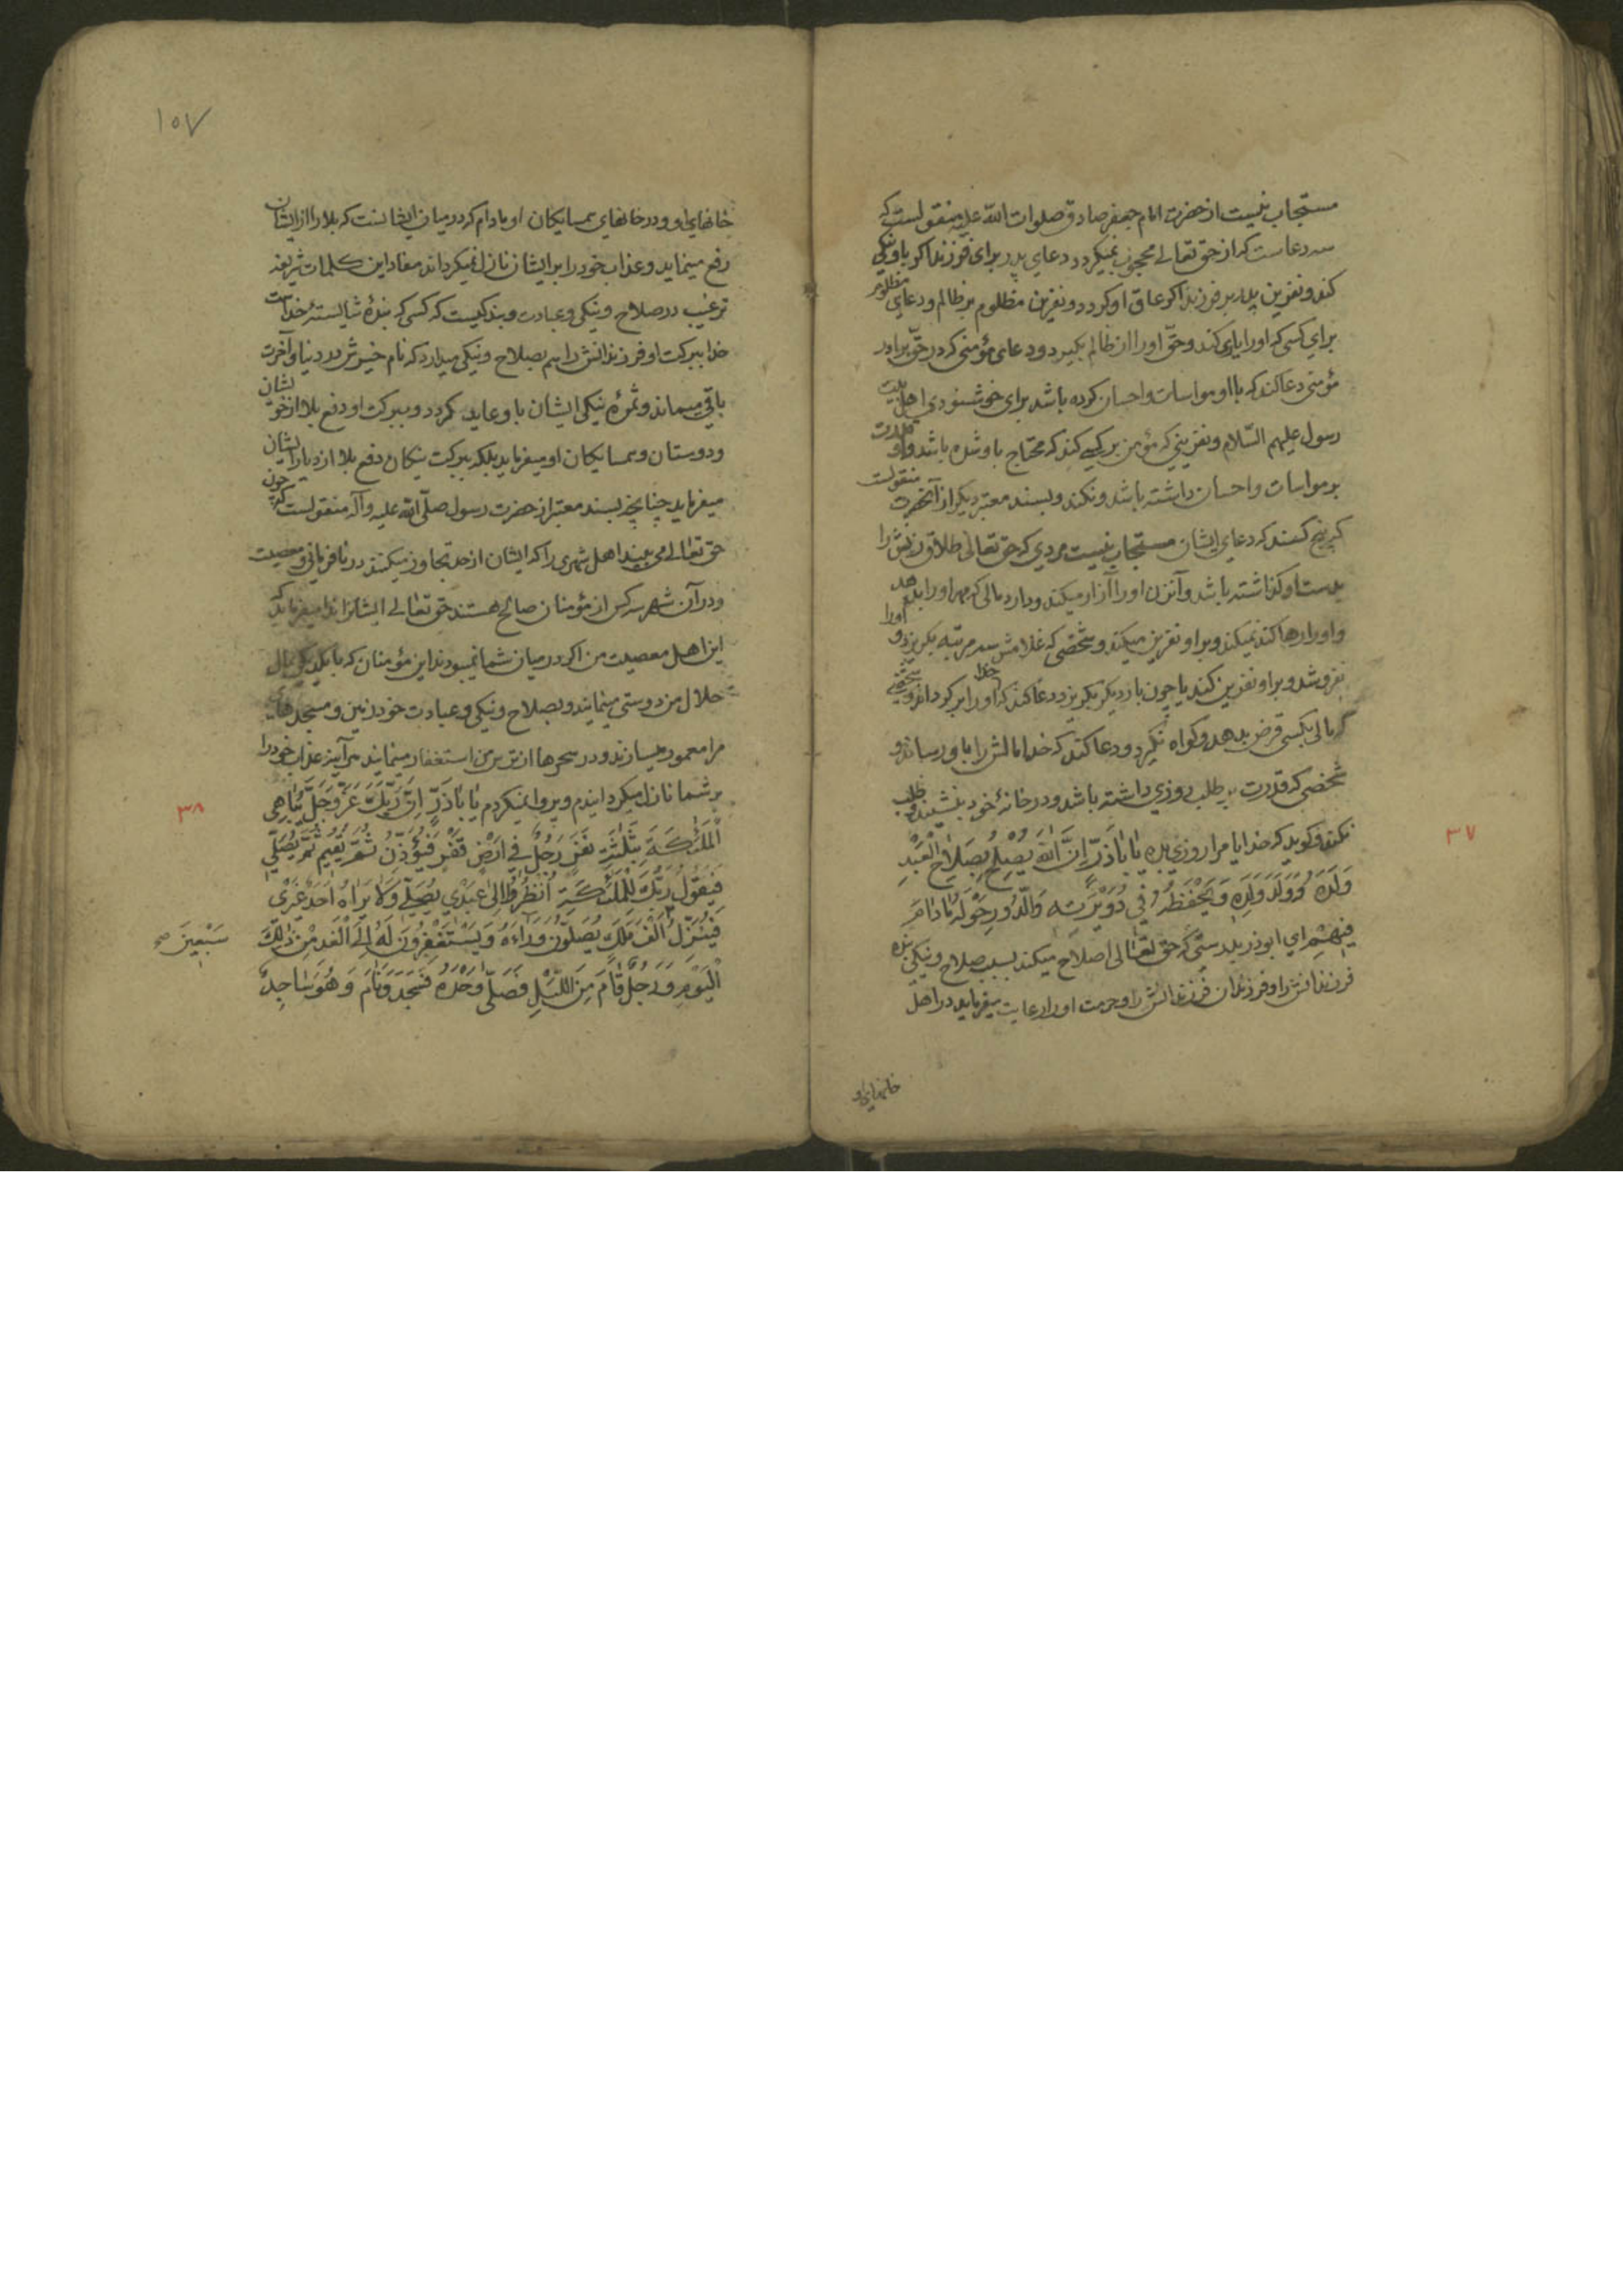 مستجاب نیست از حضرت امام جعفر صادق صلوات الله علیه منقولست که
سه دعاست که از حق تعالی محجوب نمیکردد دعای پدر برای فرزند اکر باو نیکی
کند و نفرین پدر بر فرزند اکر عاق او کردد و نفرین مظلوم بر ظالم و دعای مظلوم
برای کسی که او را یاری کند و حق او را از ظالم بکیرد و دعای مؤمنی که در حق برادر
مؤمنی دعا کند که با او مواسات و احسان کرده باشد برای خوشنودی اهل بیت
رسول علیهم السلام و نفرینی که مؤمن بر کسی کند که محتاج باو شده باشد و او قدرت
بر مواسات و احسان داشته باشد و نکند و بسند معتبر دیکر از آنحضرت منقولست
که پنج کسند که دعای ایشان مستجاب نیست مردی که حق تعالی طلاق زنش را
بدست او کذاشته باشد و آنزن او را آزار میکند و دارد مالی که مهر او را بدهد
و او را رها کند نمیکند و بر او نفرین میکند و شخصی که غلامش سه مرتبه بکریزد و او را
نفروشد و بر او نفرین کند یا چون بار دیکر بکریزد دعا کند که خدا او را برکرداند و شخصی
که مالی بکسی قرض بدهد و کواه نکیرد و دعا کند که خدا مالش را باو رساند و
شخصی که قدرت بر طلب روزی داشته باشد و در خانهٔ خود بنشیند و طلب
نکند و کوید که خدایا مرا روزی بده یٰا اَبٰاذَرٍّ اِنَّ اللّٰهَ یُصْلِحُ بِصَلٰاحِ الْعَبْدِ
وَلَدَهُ وَوَلَدَ وَلَدِهِ وَیَحْفَظُهُ فِی دُوَیْرَتِهِ وَالدُّورِ حَوْلَهُ مٰادٰامَ
فِیهِمْ ای ابوذر بدرستی که حق تعالی اصلاح میکند بسبب صلاح و نیکی بنده
فرزندانش را و فرزندان فرزندانش را و حرمت او را رعایت میفرماید در اهل
خانهای او
۳۷
۱۰۷
خانهای او و در خانهای همسایکان او مادام که در میان ایشانست که بلا را از ایشان
رفع مینماید و عذاب خود را بر ایشان نازل نمیکرداند مفاد این کلمات شریفه
ترغیب در صلاح و نیکی و عبادت و بندکیست که کسی که بندهٔ شایستهٔ خداست
خدا ببرکت او فرزندانش را هم بصلاح و نیکی میدارد که نام خیرش در دنیا و آخرت
باقی میماند و ثمرهٔ نیکی ایشان باو عاید کردد و ببرکت او دفع بلا از خویشان
و دوستان و همسایکان او میفرماید بلکه ببرکت نیکان دفع بلا از دیار ایشان
میفرماید چنانچه بسند معتبر از حضرت رسول صلّی الله علیه وآله منقولست که چون
حق تعالی می بیند اهل شهری را که ایشان از حد تجاوز میکنند در نافرمانی و معصیت
و در آن شهر سه کس از مؤمنان صالح هستند حق تعالی ایشانرا ندا میفرماید که
این اهل معصیت من اکر در میان شما نمیبودند این مؤمنان که با یکدیکر بمال
حلال من دوستی مینمایند و بصلاح و نیکی و عبادت خود زمین و مسجدهای
مرا معمور میسازند و در سحرها از ترس من استغفار مینمایند هرآینه عذاب خود را
بر شما نازل میکردانیدم و پروا نمیکردم یٰا اَبٰاذَرٍّ اِنَّ رَبَّکَ عَزَّ وَجَلَّ یُبٰاهِی
الْمَلٰئِکَةَ بِثَلٰثَةِ نَفَرٍ رَجُلٌ فِی اَرْضٍ قَفْرٍ فَیُؤَذِّنُ ثُمَّ یُقِیمُ ثُمَّ یُصَلِّی
فَیَقُولُ رَبُّکَ لِلْمَلٰئِکَةِ اُنْظُرُوا اِلیٰ عَبْدِی یُصَلِّی وَلٰا یَرٰاهُ اَحَدٌ غَیْرِی
فَیُنْزِلُ اَلْفَ مَلَکٍ یُصَلُّونَ وَرٰاءَهُ وَیَسْتَغْفِرُونَ لَهُ اِلَی الْغَدِ مِنْ ذٰلِکَ
الْیَوْمِ وَرَجُلٌ قٰامَ مِنَ اللَّیْلِ فَصَلّیٰ وَحْدَهُ فَسَجَدَ وَنٰامَ وَهُوَ سٰاجِدٌ
۳۸
سَبْعِینَ صح